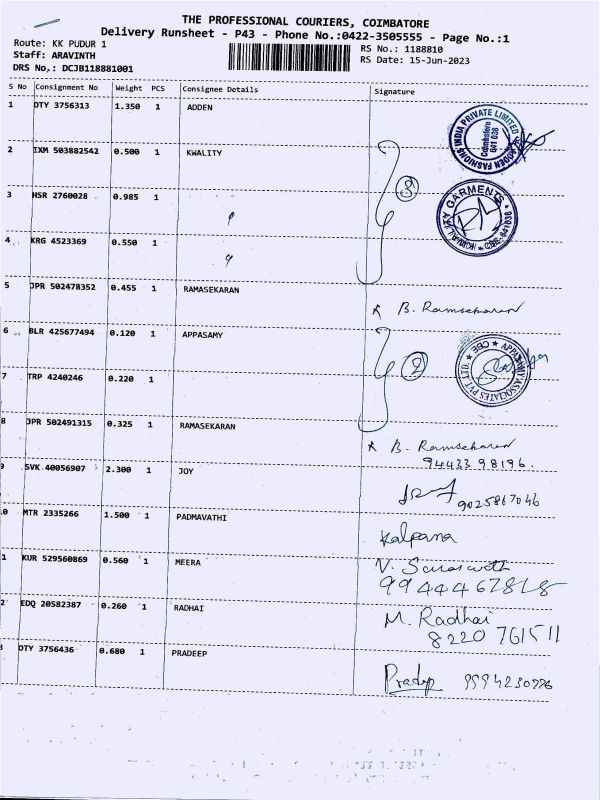 THE PROFESSIONAL COURIERS, COIMBATORE
Delivery Runsheet - P43 - Phone No.:0422-3505555 - Page No.:1
Route: KK PUDUR 1
RS No.: 1188810
Staff: ARAVINTH
RS Date: 15-Jun-2023
DRS No,: DCJB118881001
S No Consignment No Weight PCS Consignee Details Signature
1 OTY 3756313 1.350 1 ADDEN
FASHIONS INDIA PRIVATE LIMITED
Coimbatore
641 038
2 IXM 503882542 0.500 1 KWALITY
8
3 HSR 2760028 0.985 1
GARMENTS
4 KRG 4523369 0.550 1
5 JPR 502478352 0.455 1 RAMASEKARAN
B. Ramsekaran
6 BLR 425677494 0.120 1 APPASAMY
2
7 TRP 4240246 0.220 1
8 JPR 502491315 0.325 1 RAMASEKARAN
B. Ramsekaran
94433 98196.
9 SVK 40056907 2.300 1 JOY
9025867046
0 MTR 2335266 1.500 1 PADMAVATHI
Kalpana
1 KUR 529560869 0.560 1 MEERA
V. Saraswathi
2 EDQ 20582387 0.260 1 RADHAI
M. Radhai
8220 761511
3 OTY 3756436 0.680 1 PRADEEP
Pradep